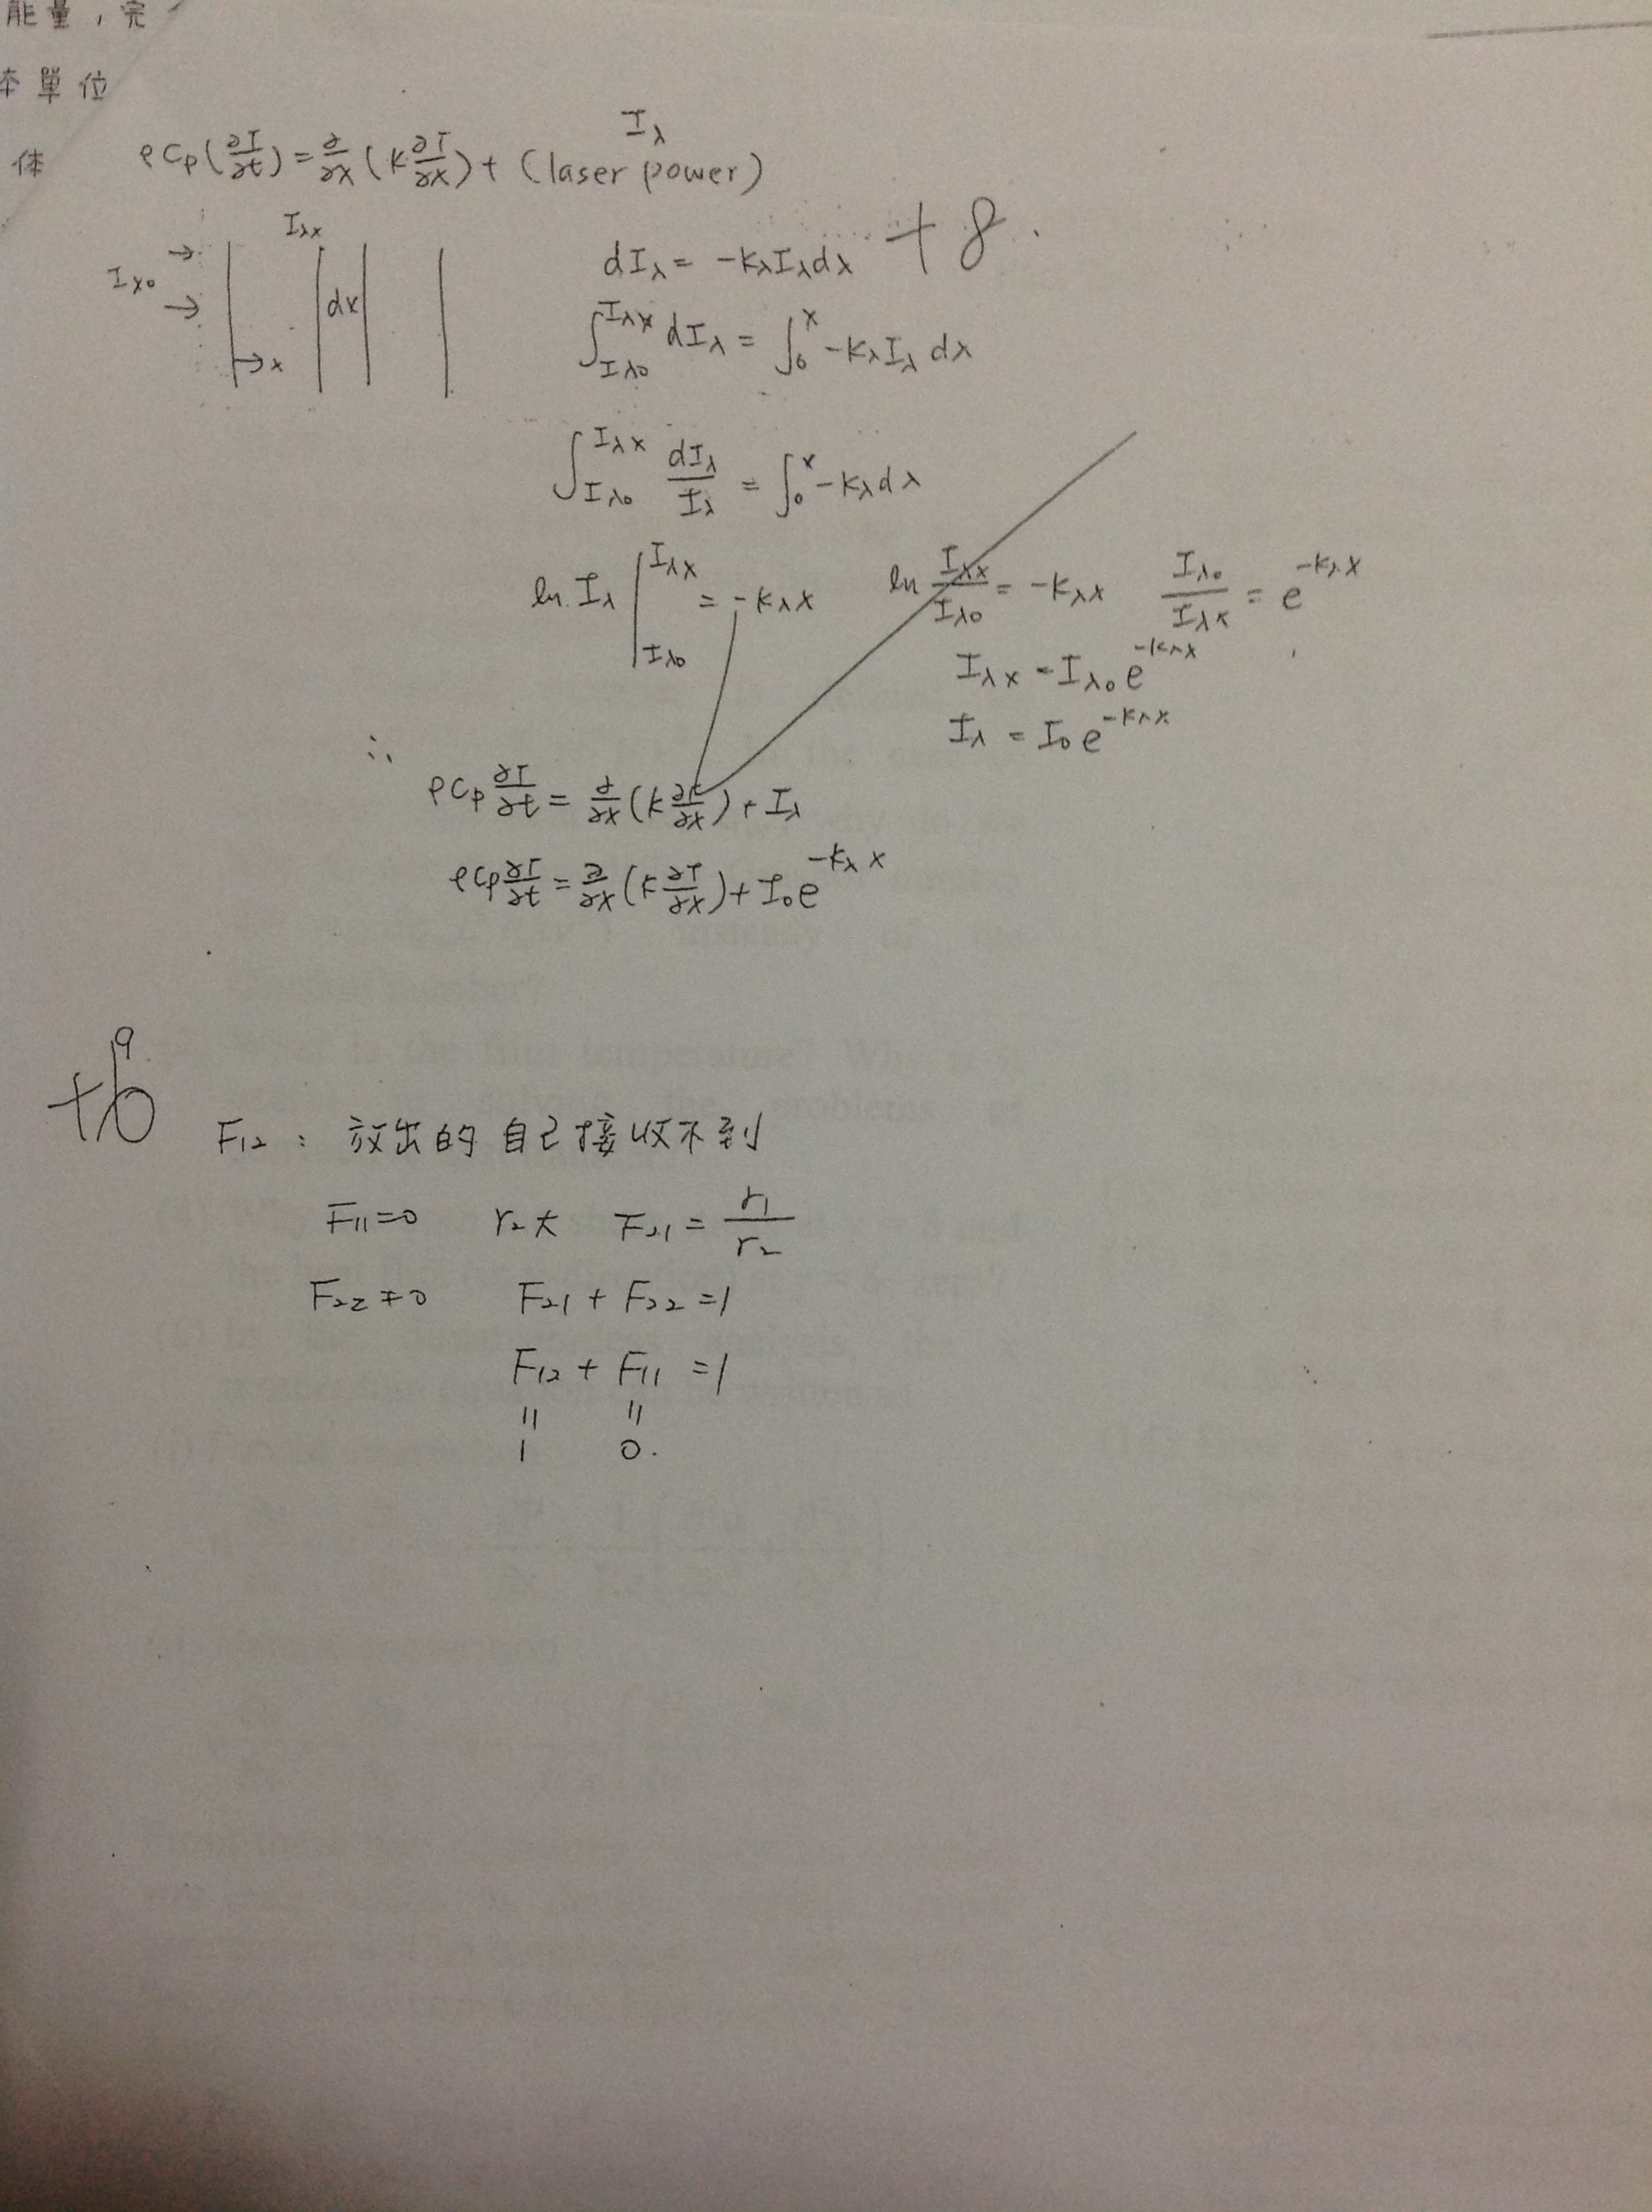 能量，完
本單位
体
Iλ
ρCp(∂T/∂t) = ∂/∂x (k ∂T/∂x) + (laser power)
Iλx
+8.
Iλ0 → →
dx
→x
dIλ = -kλIλdx
∫_{Iλ0}^{Iλx} dIλ = ∫_0^x -kλIλ dx
∫_{Iλ0}^{Iλx} dIλ/Iλ = ∫_0^x -kλdx
ln Iλ |_{Iλ0}^{Iλx} = -kλx   ln Iλx/Iλ0 = -kλx   Iλ0/Iλx = e^{-kλx}
Iλx = Iλ0 e^{-kλx}
Iλ = I0 e^{-kλx}
∴
ρCp ∂T/∂t = ∂/∂x (k ∂T/∂x) + Iλ
ρCp ∂T/∂t = ∂/∂x (k ∂T/∂x) + I0 e^{-kλx}
9
+6
F12 : 放出的自己接收不到
F11=0   r2大   F21 = r1/r2
F22≠0   F21 + F22 =1
F12 + F11 =1
"   "
1   0.